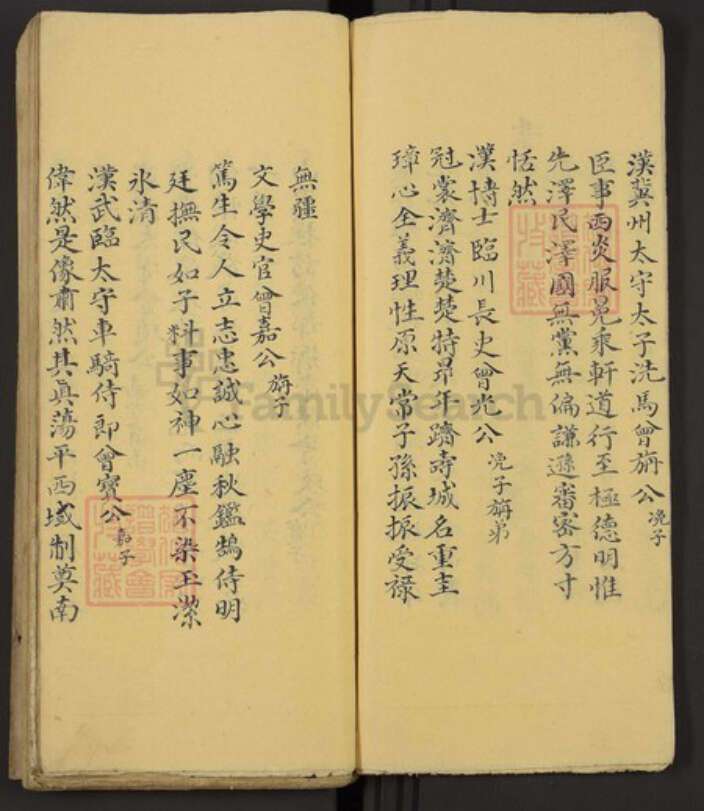 漢冀州太守太子洗馬曾旃公 浼子
臣事西炎服冕乘軒道行至極德明惟
先澤民澤國無黨無偏謙遜審密方寸
恬然
漢博士臨川長史曾光公 浼子旃弟
冠裳濟濟楚楚特昂年躋壽城名重圭
璋心全義理性原天常子孫振振受祿
無疆
文學史官曾嘉公 旃子
篤生令人立志忠誠心融秋鑑鵠侍明
廷撫民如子料事如神一塵不染玉潔
氷清
漢武臨太守車騎侍郎曾寶公 嘉子
偉然是像肅然其真蕩平西域制莫南
FamilySearch